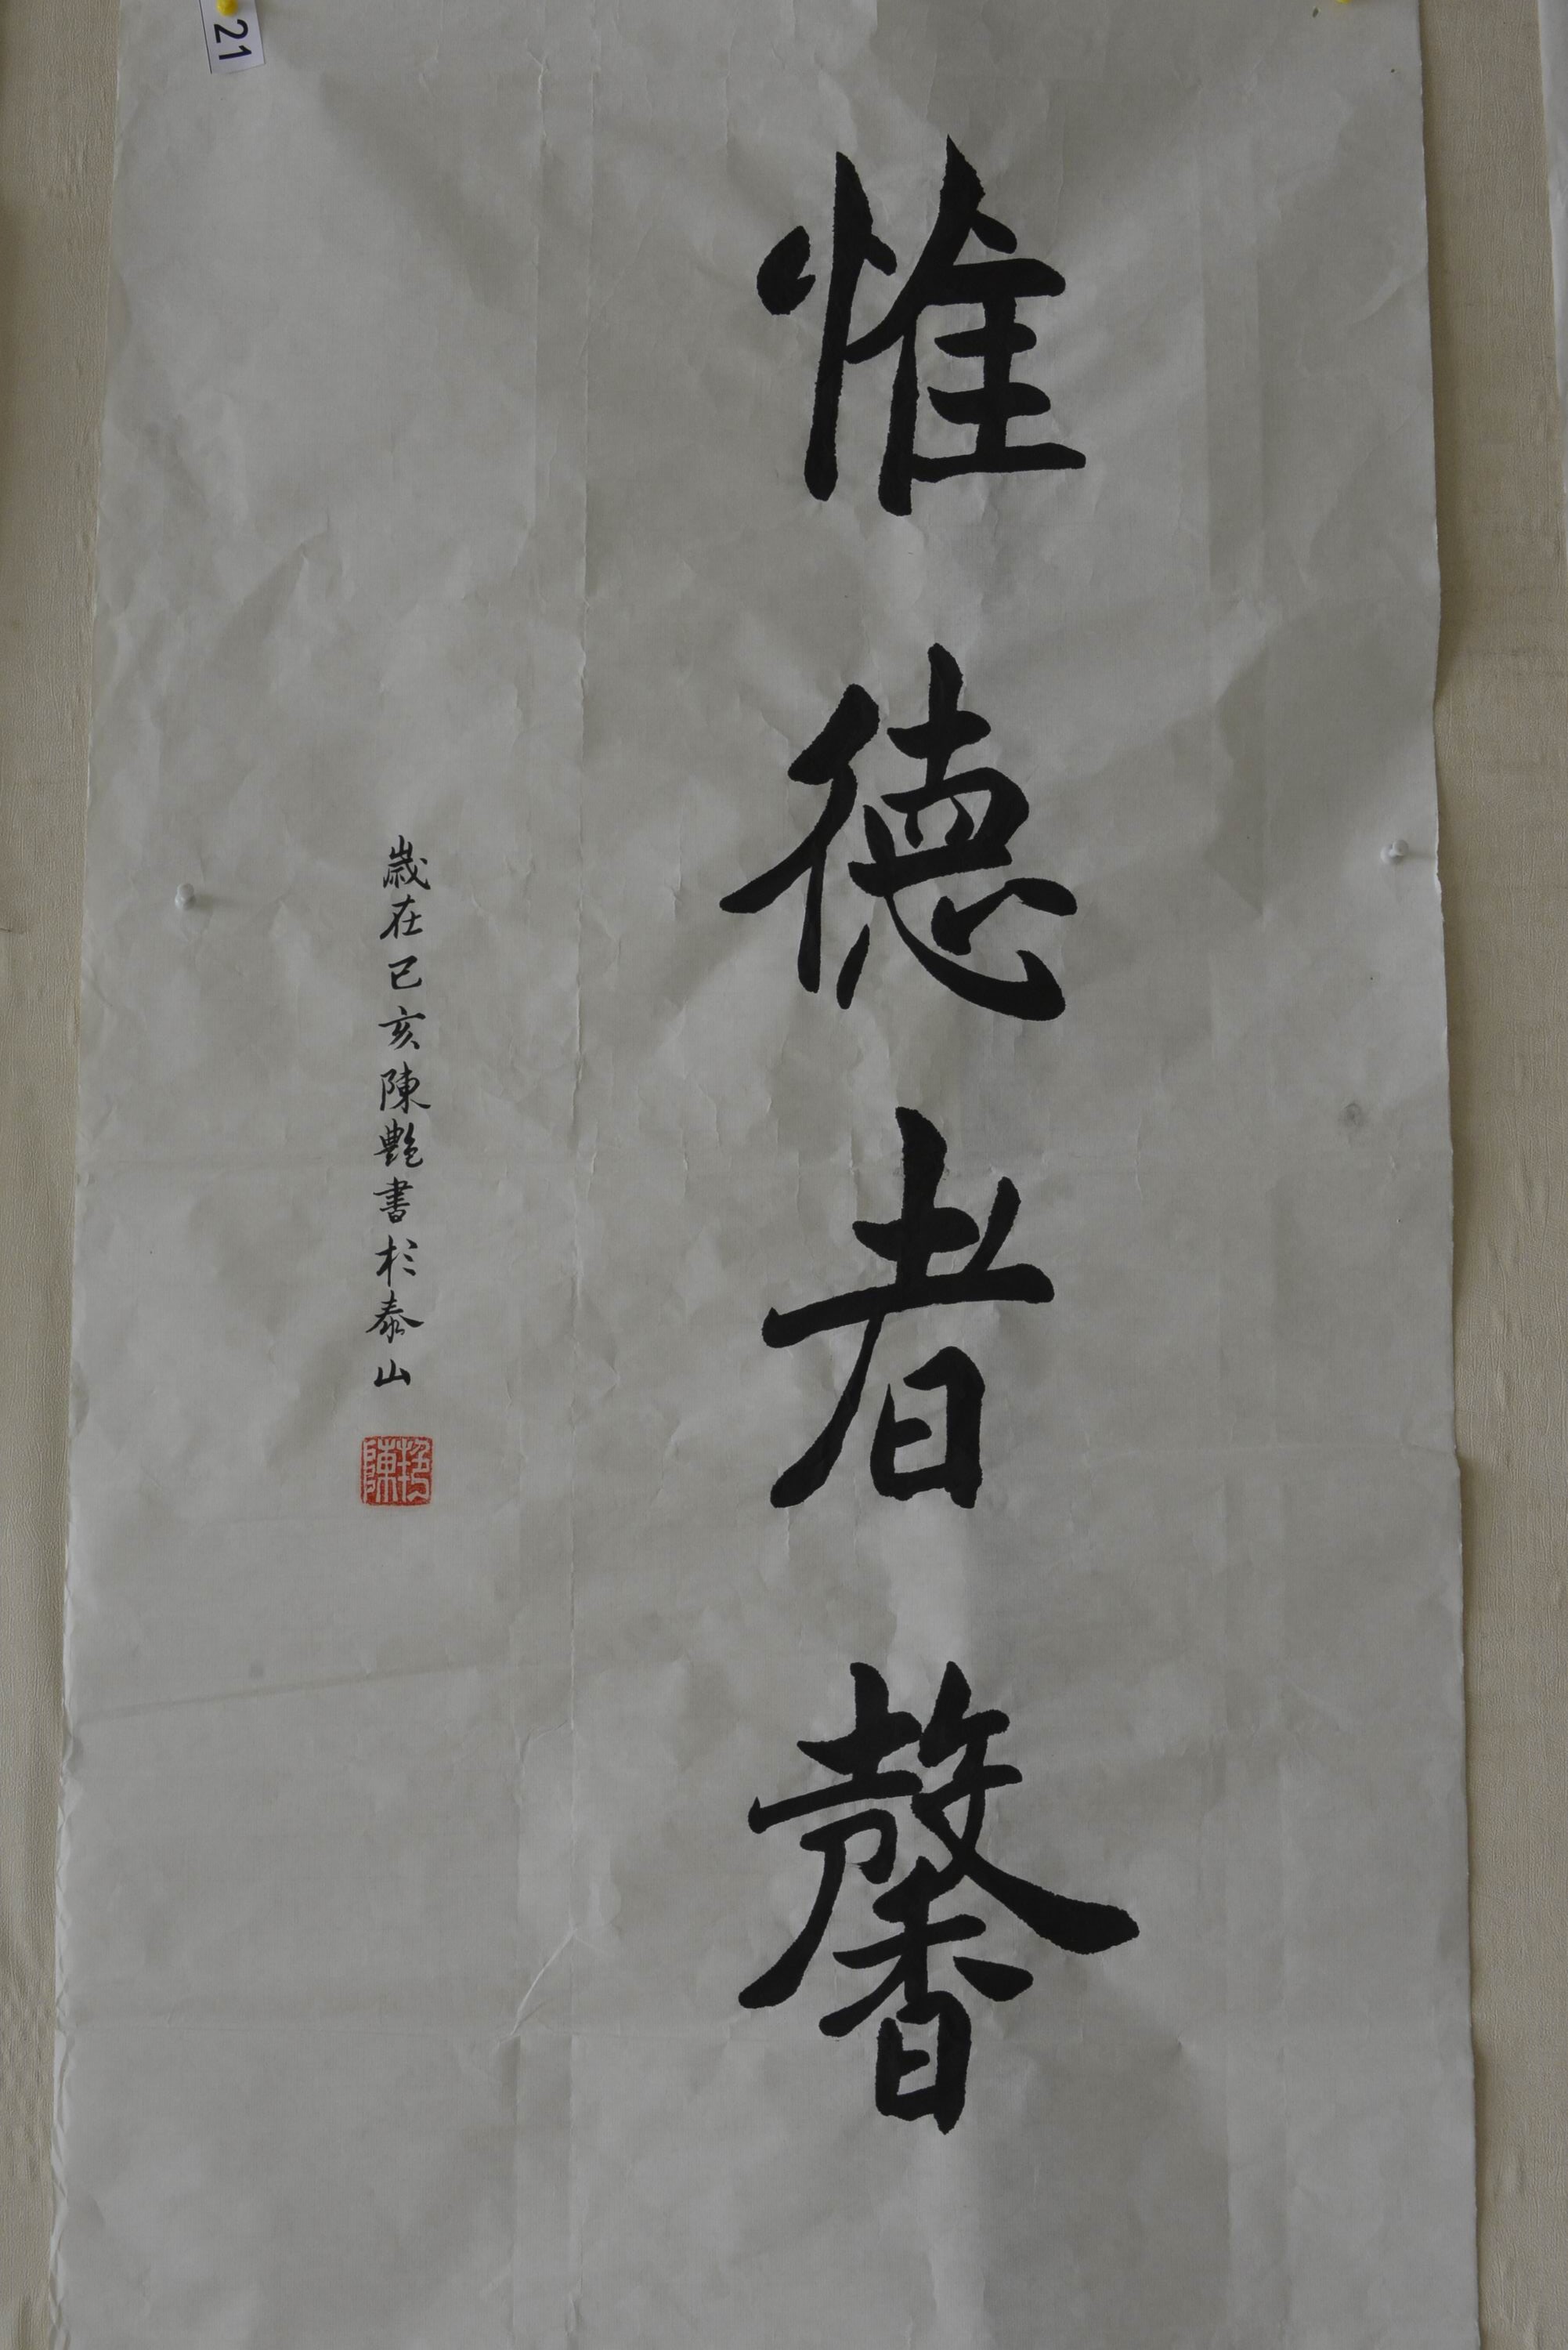 惟德者馨
歲在己亥陳艷書於泰山
陳艷
21